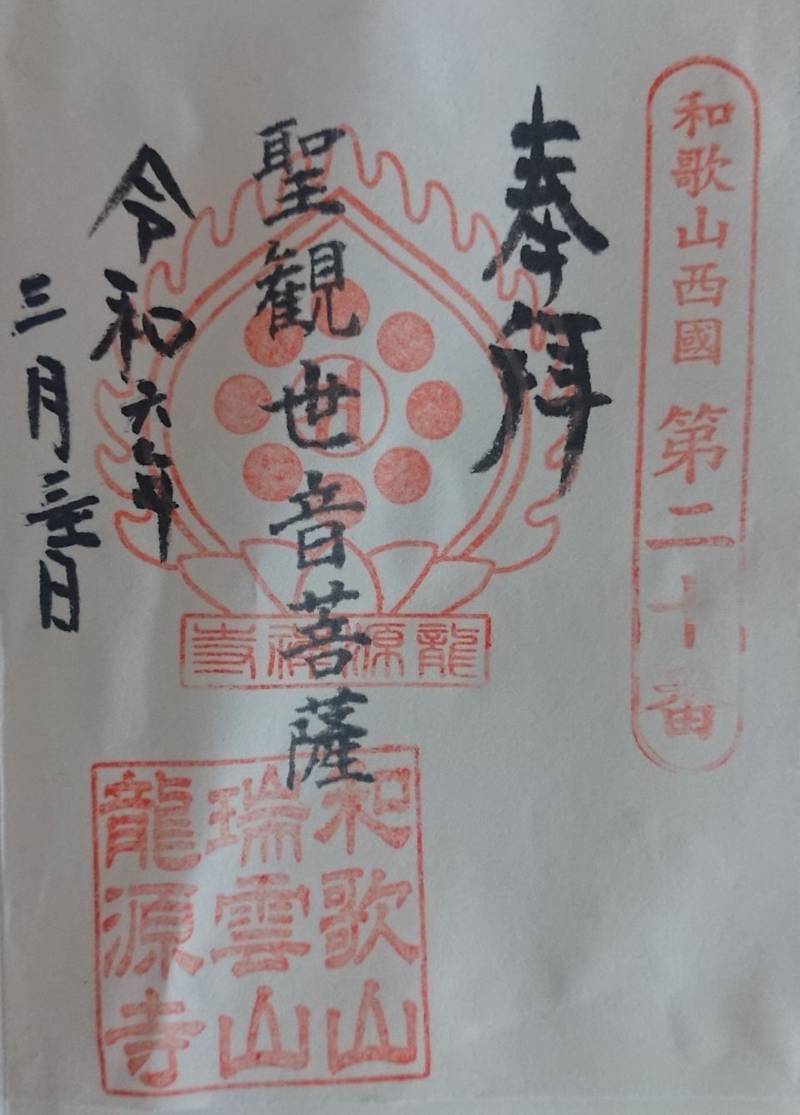 和歌山西國 第二十番
奉拝
聖観世音菩薩
龍源禅寺
令和六年
三月 日
和歌山
瑞雲山
龍源寺